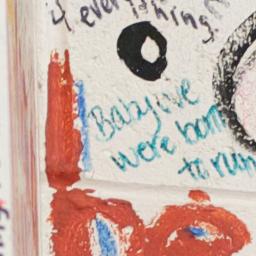 everything
Baby we
were born
to run